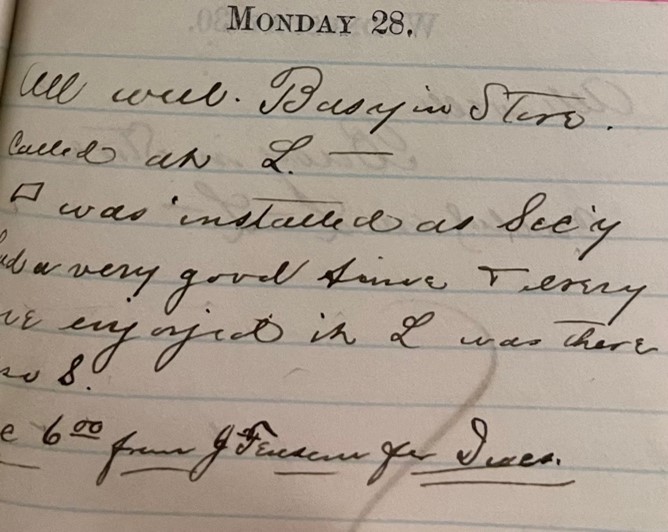 MONDAY 28.
All well. Busy in Store.
Called at L. —
I was installed as Sec'y
had a very good time & every
enjoyed it L was there
8.
6 00 from J for Dues.